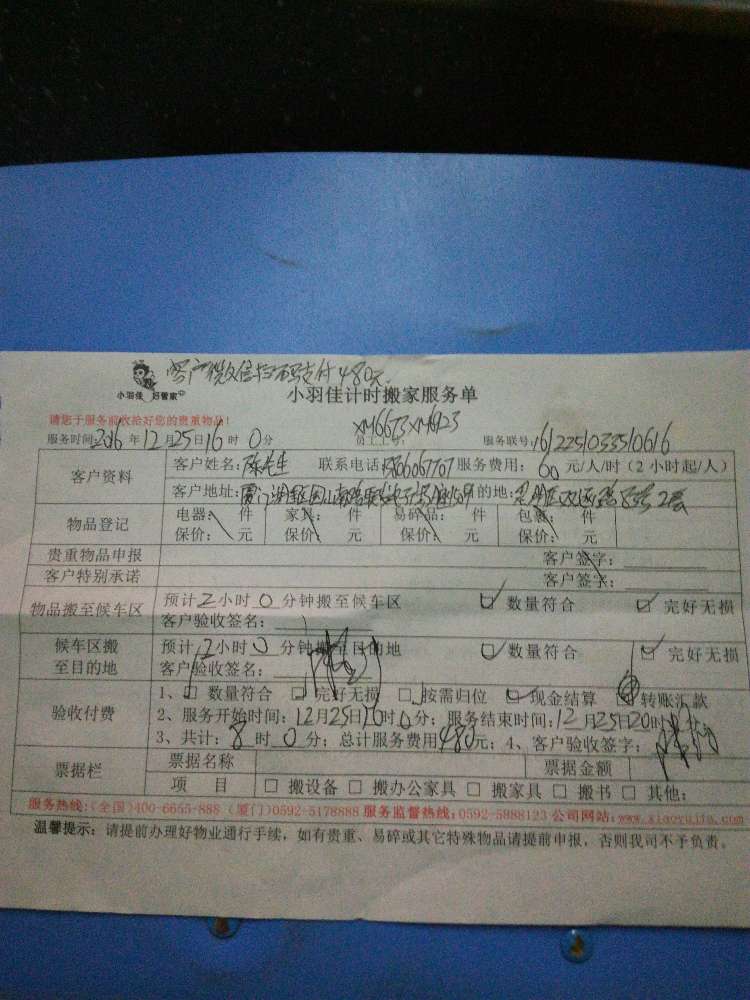 客户微信扫码支付480元
小羽佳 好管家
小羽佳计时搬家服务单
请您于服务前收拾好您的贵重物品!
服务时间:2016年12月25日16时0分 员工工号: XM6673 XM4923 服务联号:1612251033510616
客户资料
客户姓名: 陈先生 联系电话 服务费用: 60 元/人/时(2小时起/人)
客户地址: 目的地:
物品登记
电器: 件 家具: 件 易碎品: 件 包裹: 件
保价: 元 保价: 元 保价: 元 保价: 元
贵重物品申报 客户签字:
客户特别承诺 客户签字:
物品搬至候车区
预计2小时0分钟搬至候车区 数量符合 完好无损
客户验收签名:
候车区搬至目的地
预计2小时0分钟搬至目的地 数量符合 完好无损
客户验收签名:
验收付费
1、数量符合 完好无损 按需归位 现金结算 转账汇款
2、服务开始时间:12月25日16时0分; 服务结束时间:12月25日20时
3、共计:8时0分; 总计服务费用480元; 4、客户验收签字:
票据栏
票据名称 票据金额
项 目 □ 搬设备 □ 搬办公家具 □ 搬家具 □ 搬书 □ 其他:
服务热线:(全国)400-6655-888 (厦门)0592-5178888 服务监督热线:0592-5888123 公司网站:www.xiaoyujia.com
温馨提示: 请提前办理好物业通行手续,如有贵重、易碎或其它特殊物品请提前申报,否则我司不予负责。